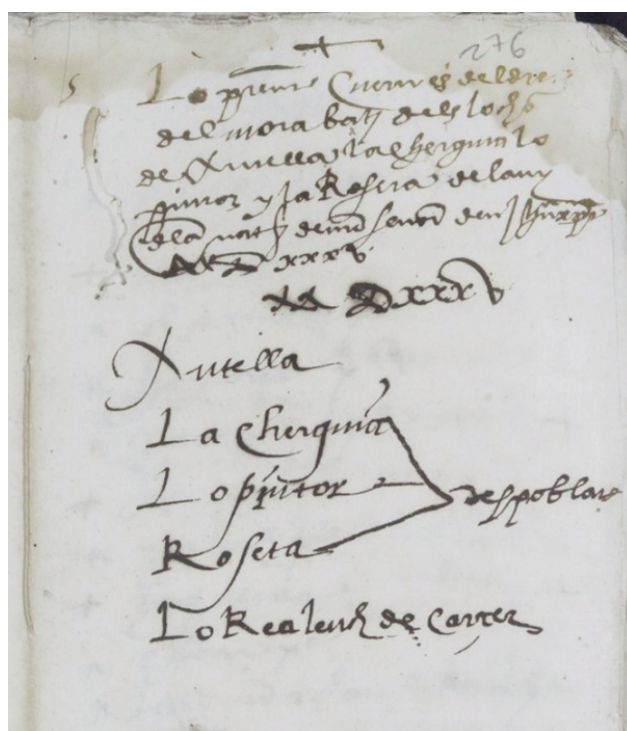 276
5
Lo present Cuern es del dre
del morabati dels lochs
de Antella la cherquia lo
pintor y la Roseta de lany
dela nati de nre senor deu Jhu xpi
M D xxxv
M Dxxxv
Antella
La Cherquia
Lo pintor
despoblats
Roseta
Lo Realench de Carcer